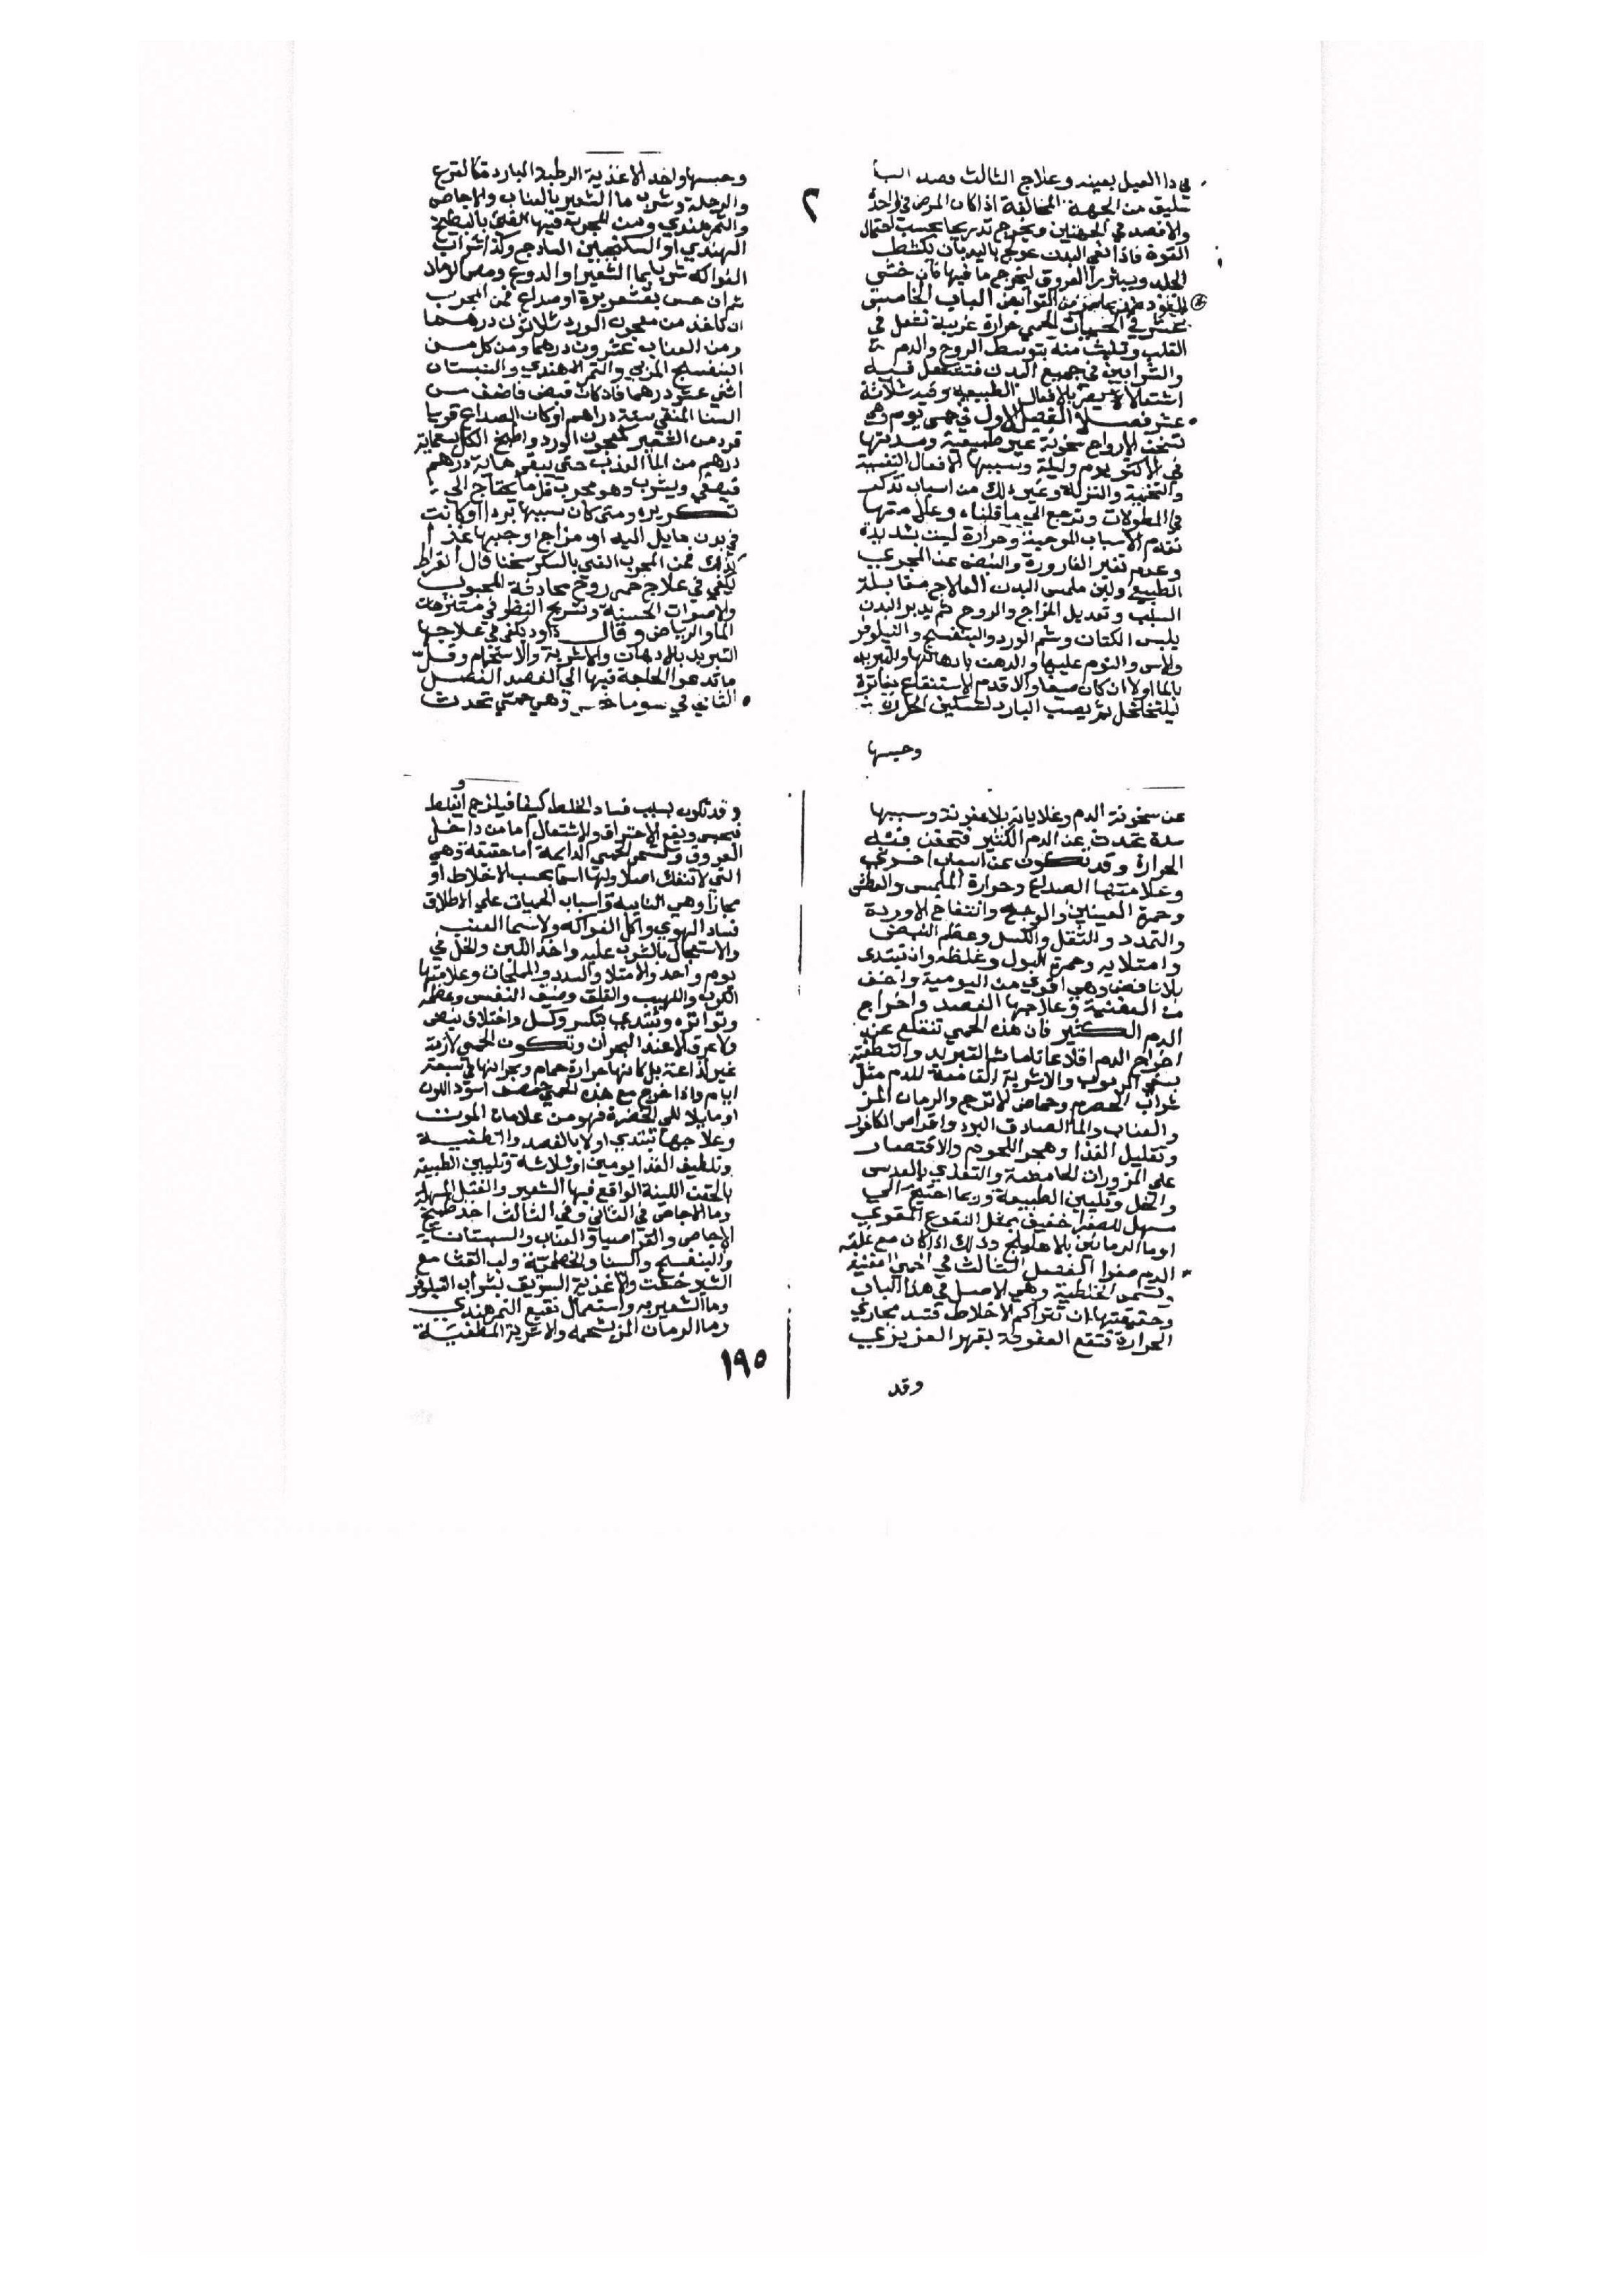 في دا الفيل بعينه وعلاج الثالث فصد البا
سليق من الجهة المخالفة اذا كان المرض في واحدة
والا فصد في الجهتين ويخرج تدريجا بحسب احتمال
القوة فاذا نقي البدن عولج باليد بان يكشط
الجلد ويبثر العروق ليخرج ما فيها فان خشي
من القوابض الباب الخامس
عشر في الحميات الحمي حرارة غريبة تفعل في
القلب وتنبث منه بتوسط الروح والدم
والشرايين في جميع البدن فتشتعل فيه
اشتعالا يضر بالافعال الطبيعية وفيه ثلاثة
عشر فصلا الفصل الاول في حمي يوم وهي
تسخن الارواح سخونة غير طبيعية ومدتها
في الاكثر يوم وليلة وسببها الافعال النفسية
والتخمة والنزلة وغير ذلك من اسباب تذكر
في المطولات وترجع الي ما قلناه وعلامتها
تقدم الاسباب الموجبة وحرارة ليست بشديدة
وعدم تغير القارورة والنبض عن المجري
الطبيعي ولين ملمس البدن العلاج مقابلة
السبب وتعديل المزاج والروح ثم يدبر البدن
بلبس الكتان وشم الورد والبنفسج والنيلوفر
والاس والنوم عليها والدهن بادهانها والتبريد
بالما اولا ان كان صيفا والا قدم الاستنقاع بفاترة
ليتخلخل ثم يصب البارد لتسكين الحرارة
وحبسها
وحبسها واخذ الاغذية الرطبة الباردة كالقرع
والرجلة وشرب ما الشعير بالعناب والاجاص
والتمرهندي ومن المجربة فيها القئ بالبطيخ
الهندي او السكنجبين الساذج وكذا شراب
الفواكه شربا بما الشعير او الدوغ ومص الرمان
ثم ان حس بقشعريرة او صداع فمن المجرب
ان تاخذ من معجون الورد ثلاثون درهما
ومن العناب عشرون درهما ومن كل من
البنفسج المربي والتمر الاهندي والسبستان
اثني عشر درهما فان كان قبض فاضف من
السنا المنقي ستة دراهم او كان الصداع قويا
فزد من الشعير كمعجون الورد واطبخ الكل باربعماية
درهم من الما العذب حتي يبقي ماية درهم
فيصفي ويشرب وهو مجرب قل ما يحتاج الي
تكريره ومتي كان سببها بردا او كانت
في بدن مايل اليه او مزاج اوجبها غذا
كذلك فمن المجرب القئ بالسكر سخنا قال ابقراط
يكفي في علاج حمي روح محادثة المحبوب
والاصوات الحسنة وتسريح النظر في منتزهات
الما والرياض وقال داود يكفي في علاجها
التبريد بالادهان والاشربة والاستحمام وقل
ما تدعو الحاجة فيها الي الفصد الفصل
الثاني في سوناخس وهي حمي تحدث
عن سخونة الدم وغليانه بلا عفونة وسببها
سدة تحدث عن الدم الكثير فتحقن فيه
الحرارة وقد تكون عن اسباب اخري
وعلامتها الصداع وحرارة الملمس والعطش
وحمرة العينين والوجه وانتفاخ الاوردة
والتمدد والثقل والكسل وعظم النبض
وامتلايه وحمرة البول وغلظه وان تبتدي
بلا نافض وهي اقوي من اليومية واخف
من العفنية وعلاجها الفصد واخراج
الدم الكثير فان هذه الحمي تنقلع عند
اخراج الدم اقلاعا تاما ثم التبريد والتطفية
بسقي الربوب والاشربة القامعة للدم مثل
شراب الحصرم وحماض الاترج والرمان المز
والعناب والما الصادق البرد واقراص الكافور
وتقليل الغذا وهجر اللحوم والاقتصار
علي المزورات الحامضة والتغذي بالعدس
والخل وتليين الطبيعة وربما احتيج الي
مسهل للصفرا خفيف مثل النقوع المقوي
او ما الرمانين بالاهليلج وذلك اذا كان مع غلبة
الدم صفرا الفصل الثالث في الحمي العفنية
وتسمي الخلطية وهي الاصل في هذا الباب
وحقيقتها ان تتراكم الاخلاط فتسد مجاري
الحرارة فتقع العفونة بقهر الغريزي
وقد
وقد تكون بسبب فساد الخلط كيفا فيلزج او يغلظ
فيحبس ويقع الاحتراق والاشتعال اما من داخل
العروق وتسمي الحمي الدايمة اما حقيقة وهي
التي لا تنفك اصلا ولها اسما بحسب الاخلاط او
مجازا وهي النايبة واسباب الحميات علي الاطلاق
فساد الهوي واكل الفواكه ولا سيما العنب
والاستعجال بالشرب عليه واخذ اللبن والخل في
يوم واحد والامتلا والسدد والمملحات وعلامتها
الكرب واللهيب والقلق وضيق النفس وعظمه
وتواتره وتبتدي بتكسر وكسل واختلاف نبض
ولا عرق الا عند البحران وتكون الحمي لازمة
غير لذاعة بل كانها حرارة حمام وبحرانها في سبعة
ايام واذا خرج مع هذه الحمي حمصف اسود اللون
او مايلا الي الخضرة فهو من علامات الموت
وعلاجها تبتدي اولا بالفصد والتطفية
وتلطيف الغذا يومين او ثلاثة وتليين الطبيعة
بالحقن اللينة الواقع فيها الشعير والفتل المسهلة
وما الاجاص في الثاني وفي الثالث اخذ طبيخ
الاجاص والقراصيا والعناب والسبستان
والبنفسج والسنا والخطمية ولب القثا مع
الشيرخشت والاغذية السويق بشراب النيلوفر
وما الشعير به واستعمال نقيع التمرهندي
وما الرمان المز بشحمه والاشربة المطفية
١٩٥
٢